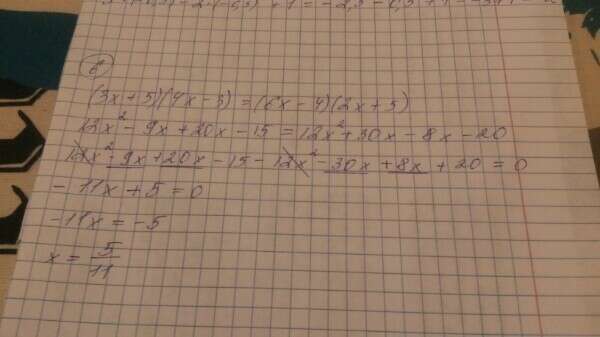 6
(3x+5)(4x-3)=(6x-4)(2x+5)
12x²-9x+20x-15=12x²+30x-8x-20
12x²-9x+20x-15-12x²-30x+8x+20=0
-11x+5=0
-11x=-5
x=5/11